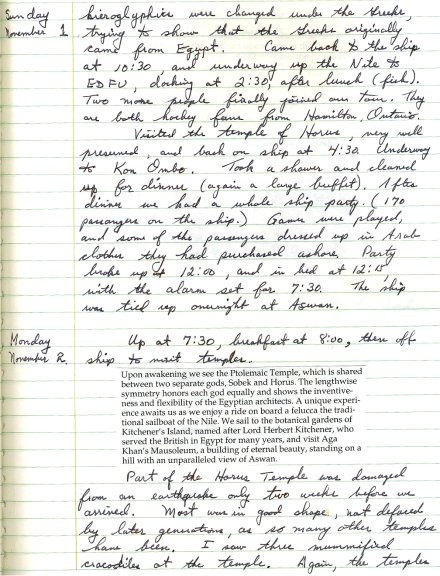 Sunday
November 1
hieroglyphics were changed under the Greeks,
trying to show that the Greeks originally
came from Egypt. Came back to the ship
at 10:30 and underway up the Nile to
EDFU, docking at 2:30, after lunch (fish).
Two more people finally joined our tour. They
are both hockey fans from Hamilton, Ontario.
Visited the temple of Horus, very well
preserved, and back on ship at 4:30. Underway
to Kom Ombo. Took a shower and cleaned
up for dinner (again a large buffet). After
dinner we had a whole ship party. (170
passangers on the ship.) Games were played,
and some of the passengers dressed up in Arab
clothes they had purchased ashore. Party
broke up at 12:00, and in bed at 12:15,
with the alarm set for 7:30. The ship
was tied up overnight at Aswan.
Monday
November 2.
Up at 7:30, breakfast at 8:00, then off
ship to visit temples.
Upon awakening we see the Ptolemaic Temple, which is shared
between two separate gods, Sobek and Horus. The lengthwise
symmetry honors each god equally and shows the inventive-
ness and flexibility of the Egyptian architects. A unique experi-
ence awaits us as we enjoy a ride on board a felucca the tradi-
tional sailboat of the Nile. We sail to the botanical gardens of
Kitchener's Island, named after Lord Herbert Kitchener, who
served the British in Egypt for many years, and visit Aga
Khan's Mausoleum, a building of eternal beauty, standing on a
hill with an unparalleled view of Aswan.
Part of the Horus Temple was damaged
from an earthquake only two weeks before we
arrived. Most was in good shape, not defaced
by later generations, as so many other temples
have been. I saw three mummified
crocodiles at the temple. Again, the temples